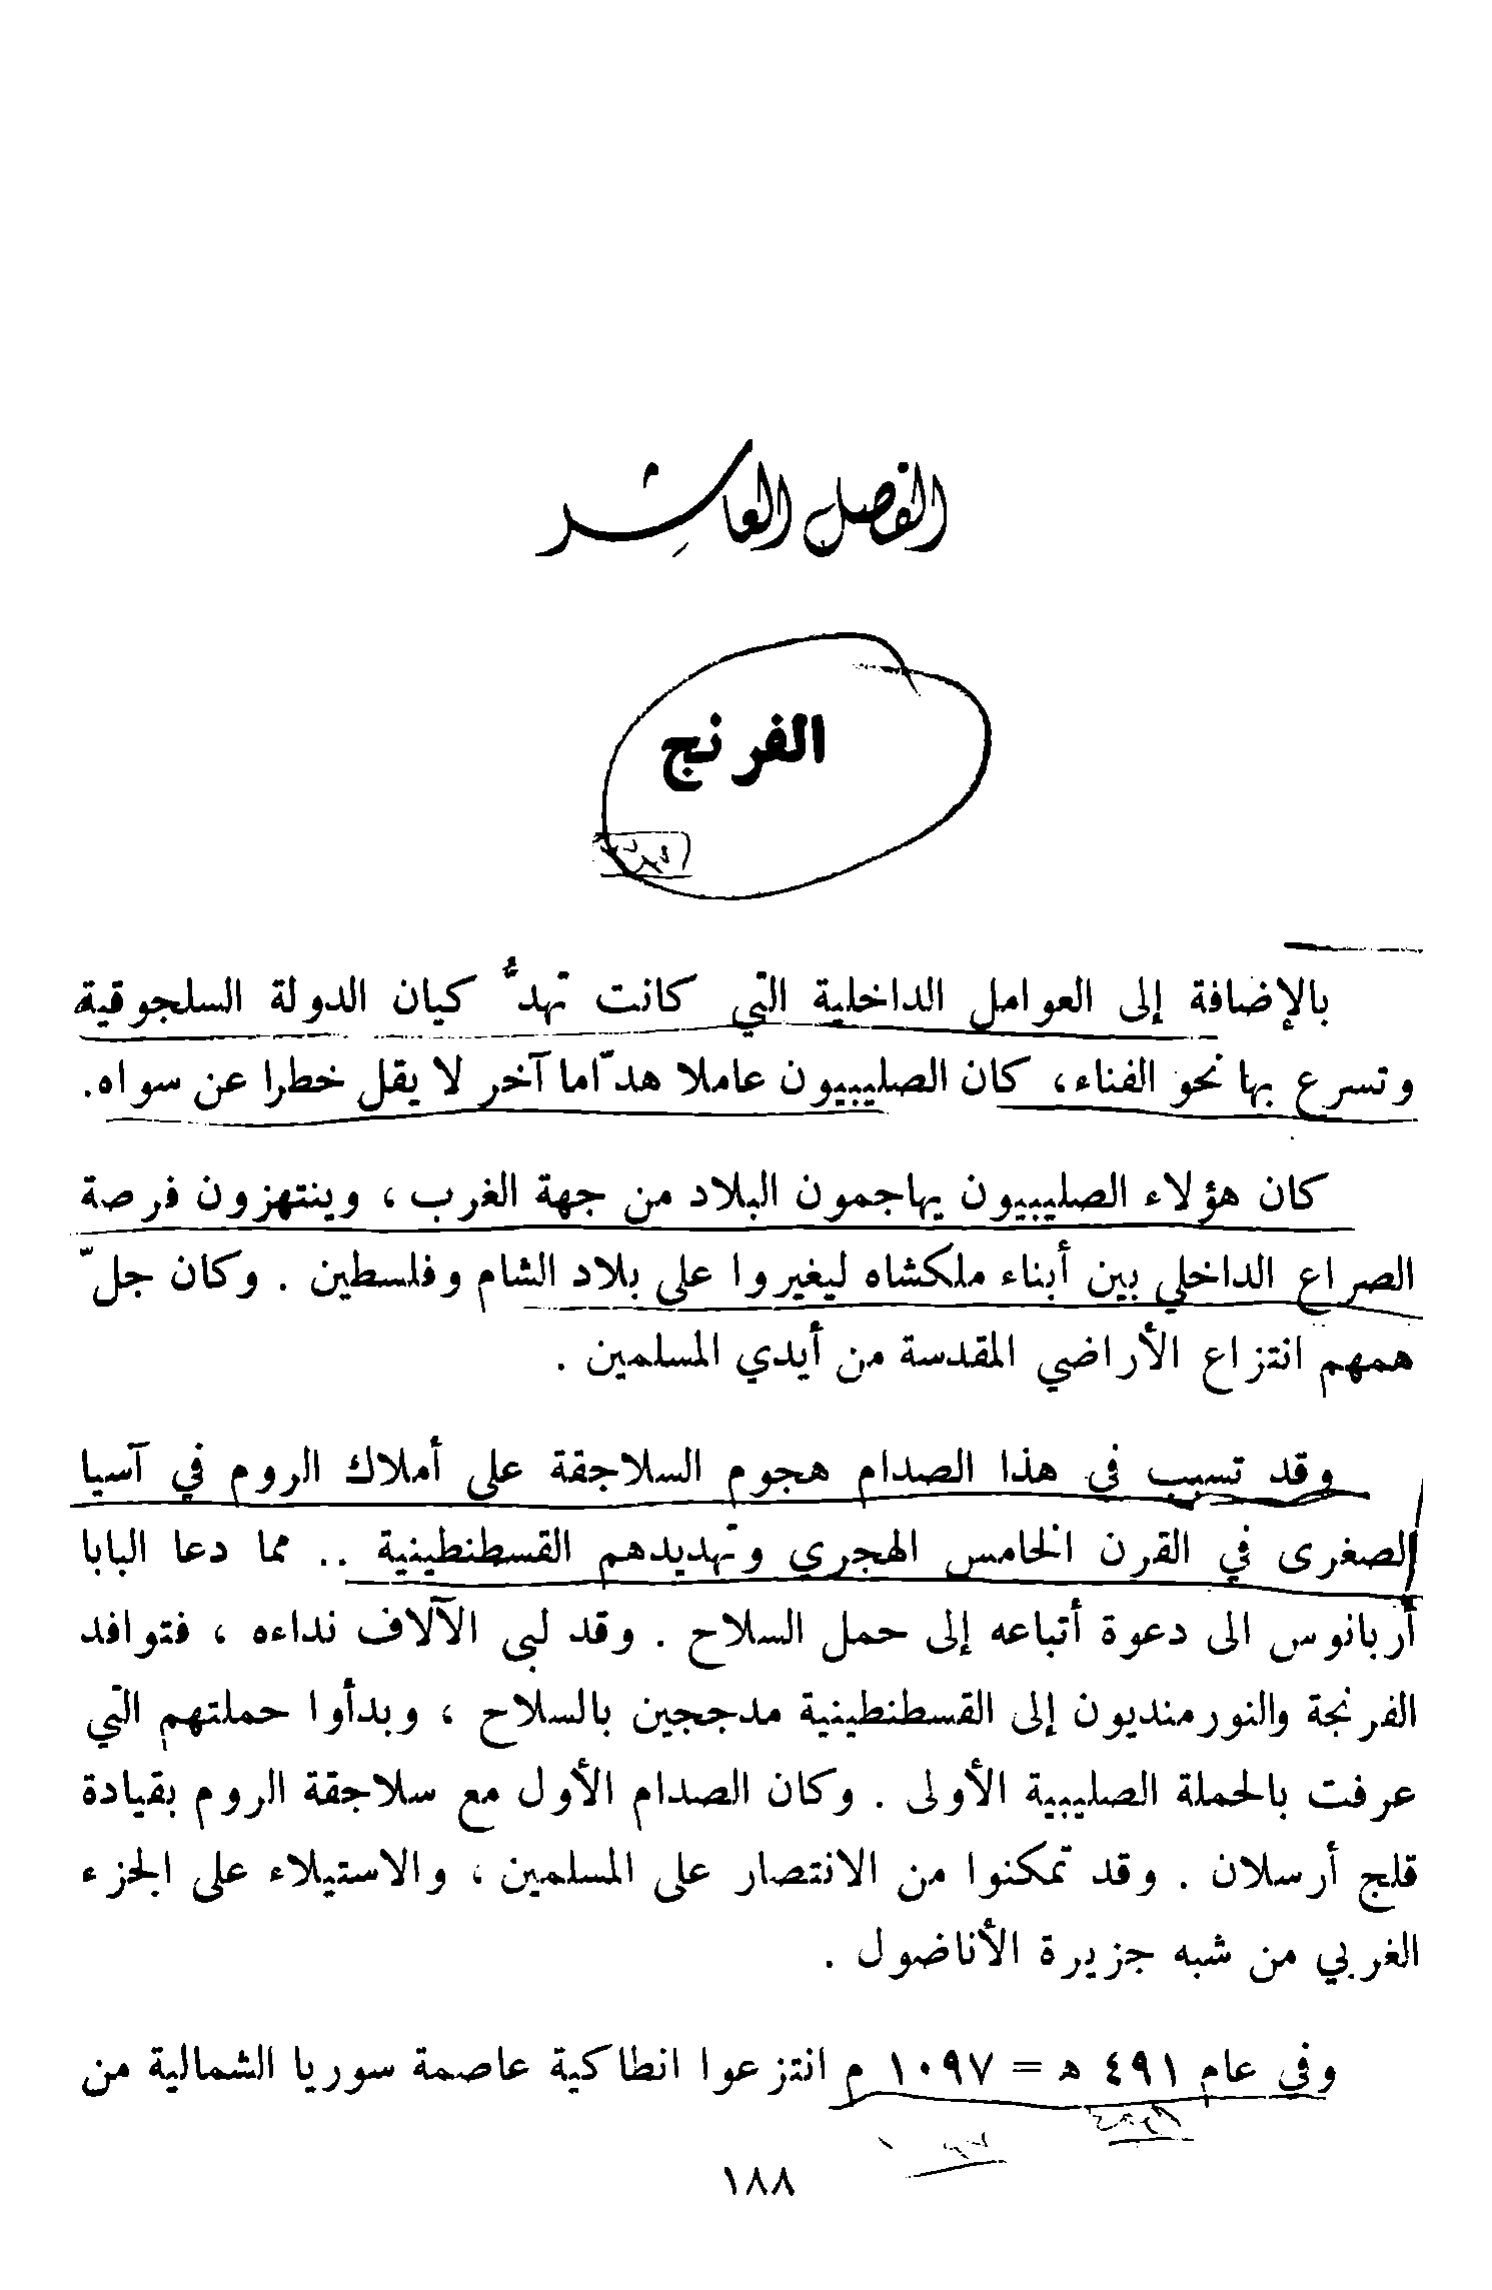 الفصل العاشر
الفرنج
بالإضافة إلى العوامل الداخلية التي كانت تهدُّ كيان الدولة السلجوقية
وتسرع بها نحو الفناء، كان الصليبيون عاملا هدّاما آخر لا يقل خطرا عن سواه.
كان هؤلاء الصليبيون يهاجمون البلاد من جهة الغرب ، وينتهزون فرصة
الصراع الداخلي بين أبناء ملكشاه ليغيروا على بلاد الشام وفلسطين . وكان جلّ
همهم انتزاع الأراضي المقدسة من أيدي المسلمين .
وقد تسبب في هذا الصدام هجوم السلاجقة على أملاك الروم في آسيا
الصغرى في القرن الخامس الهجري وتهديدهم القسطنطينية .. مما دعا البابا
أربانوس الى دعوة أتباعه إلى حمل السلاح . وقد لبى الآلاف نداءه ، فتوافد
الفرنجة والنورمنديون إلى القسطنطينية مدججين بالسلاح ، وبدأوا حملتهم التي
عرفت بالحملة الصليبية الأولى . وكان الصدام الأول مع سلاجقة الروم بقيادة
قلج أرسلان . وقد تمكنوا من الانتصار على المسلمين ، والاستيلاء على الجزء
الغربي من شبه جزيرة الأناضول .
وفي عام ٤٩١ ه = ١٠٩٧ م انتزعوا انطاكية عاصمة سوريا الشمالية من
١٨٨